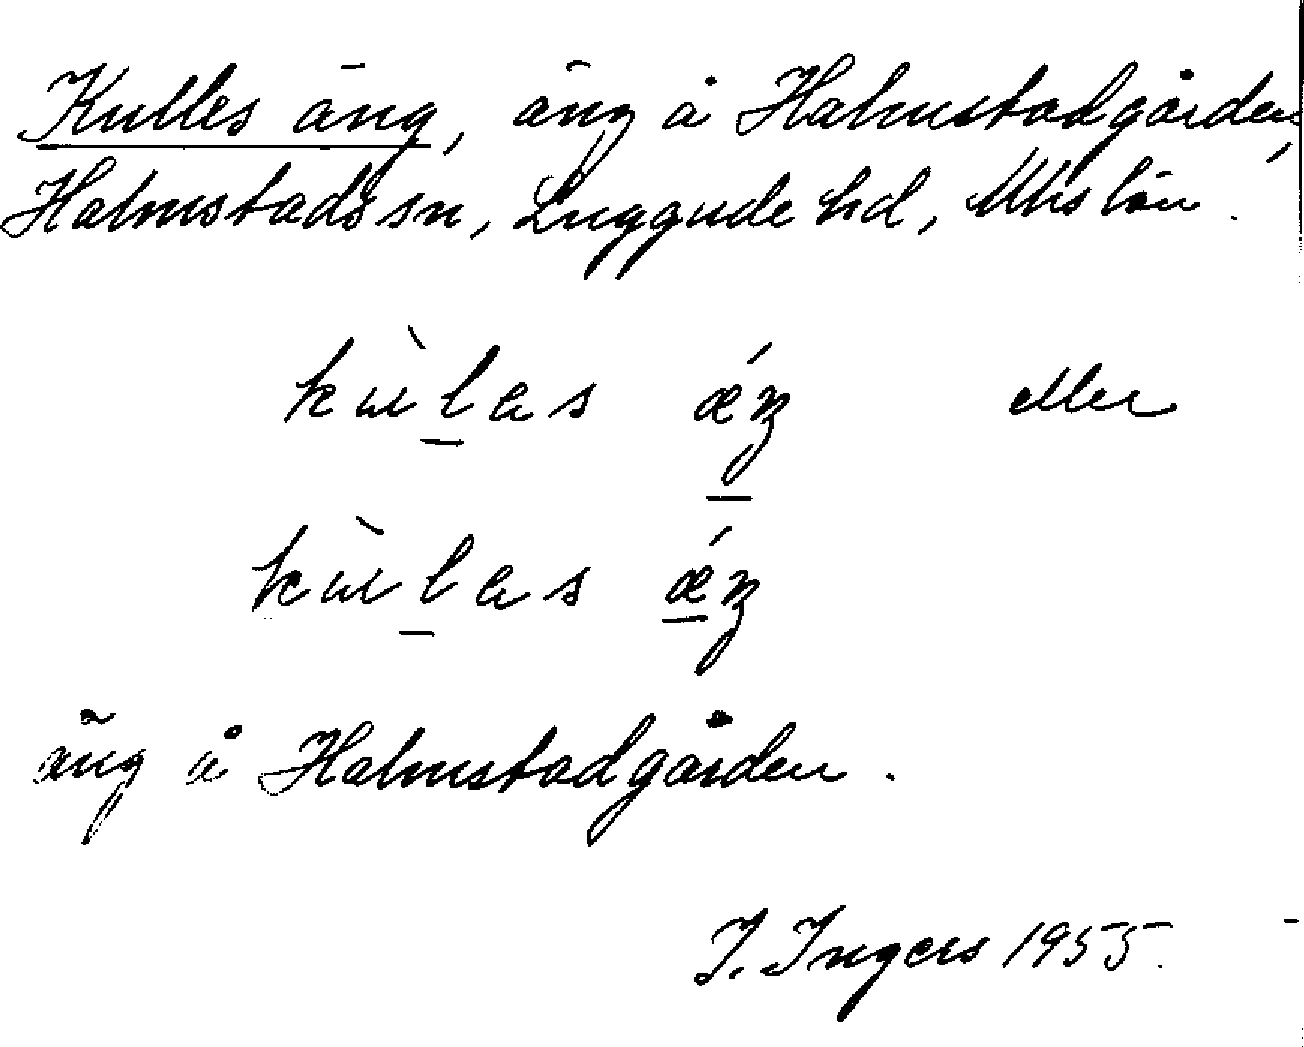 Kulles äng, äng å Halmstadgården,
Halmstads sn, Luggude hd, Mhs län.
kùlas ǽŋ eller
kùlas ǽŋ
äng å Halmstadgården.
I. Ingers 1955.